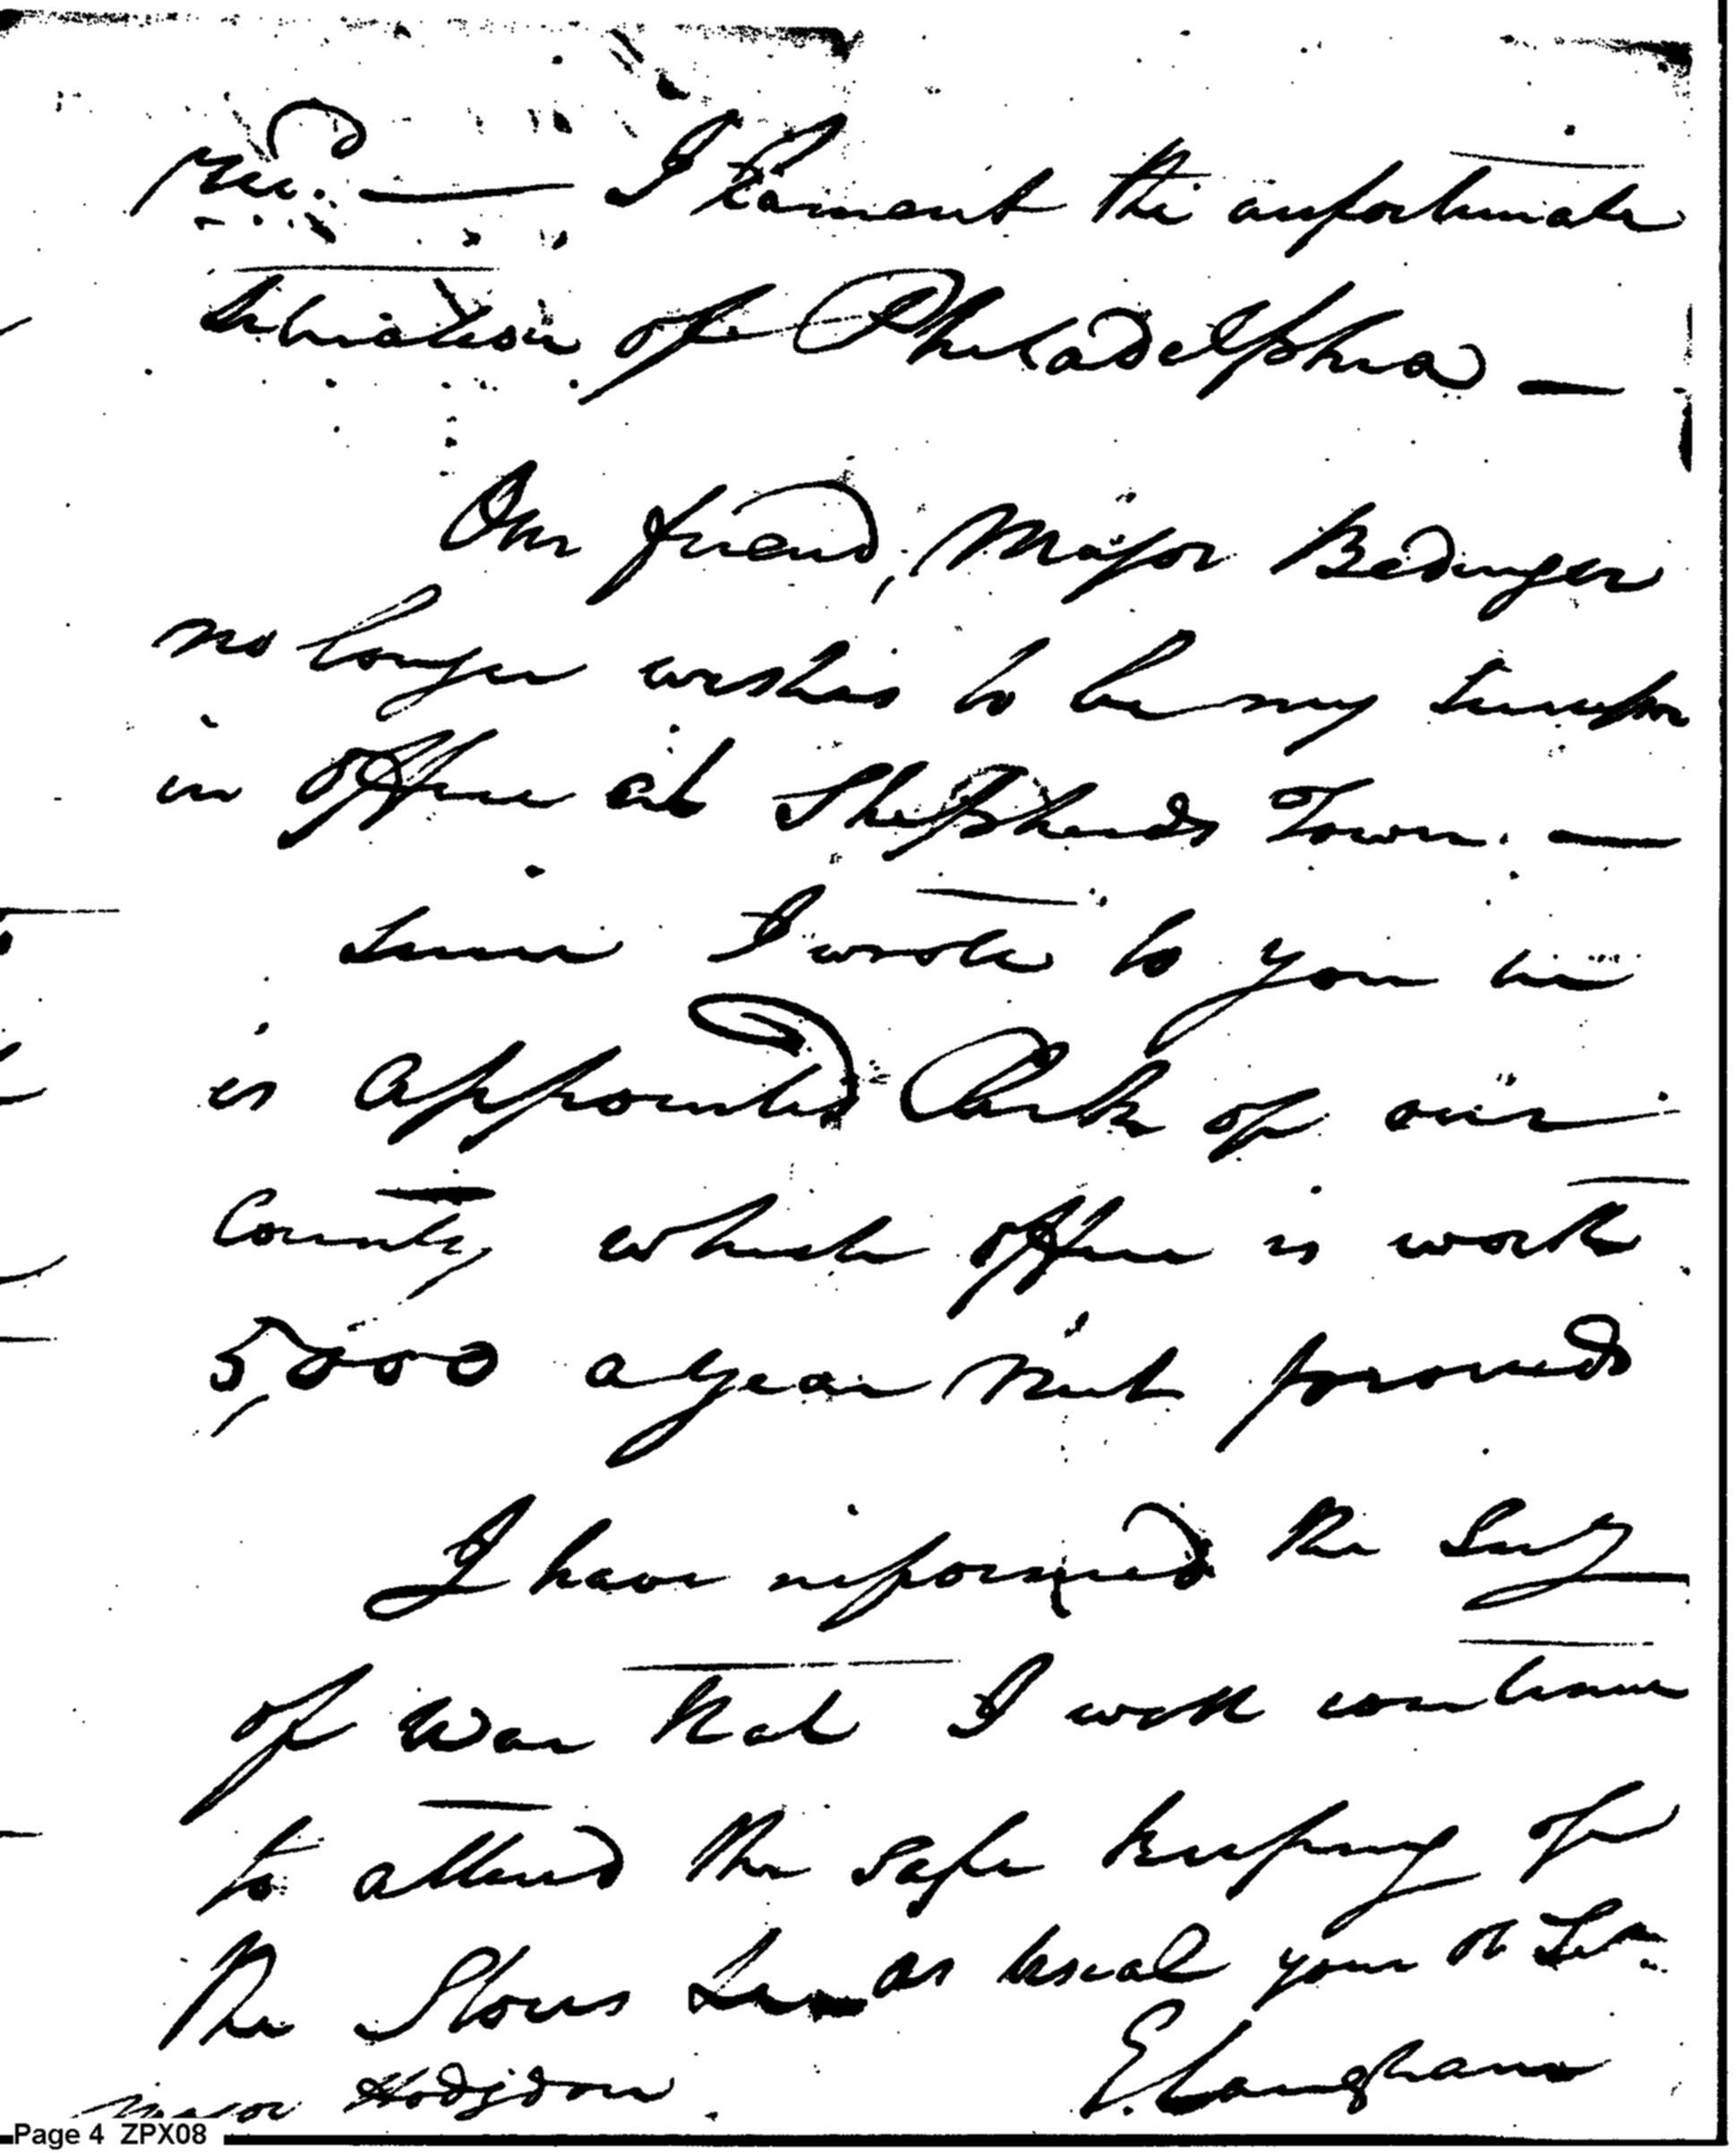 rec.d — I Lament the unfortunate
situation of Philadelphia —
Our friend, Major Bedinger
no longer wishes to be my
in office at Shepherds Town. —
Since I wrote to you he
is appointed Clerk of our
County which office is worth
5,000 a year
I have informed the Secy
of War that I will continue
to attend the safe keeping of
The Stores as usual your
Major Hodgdon E. Langham
Page 4 ZPX08